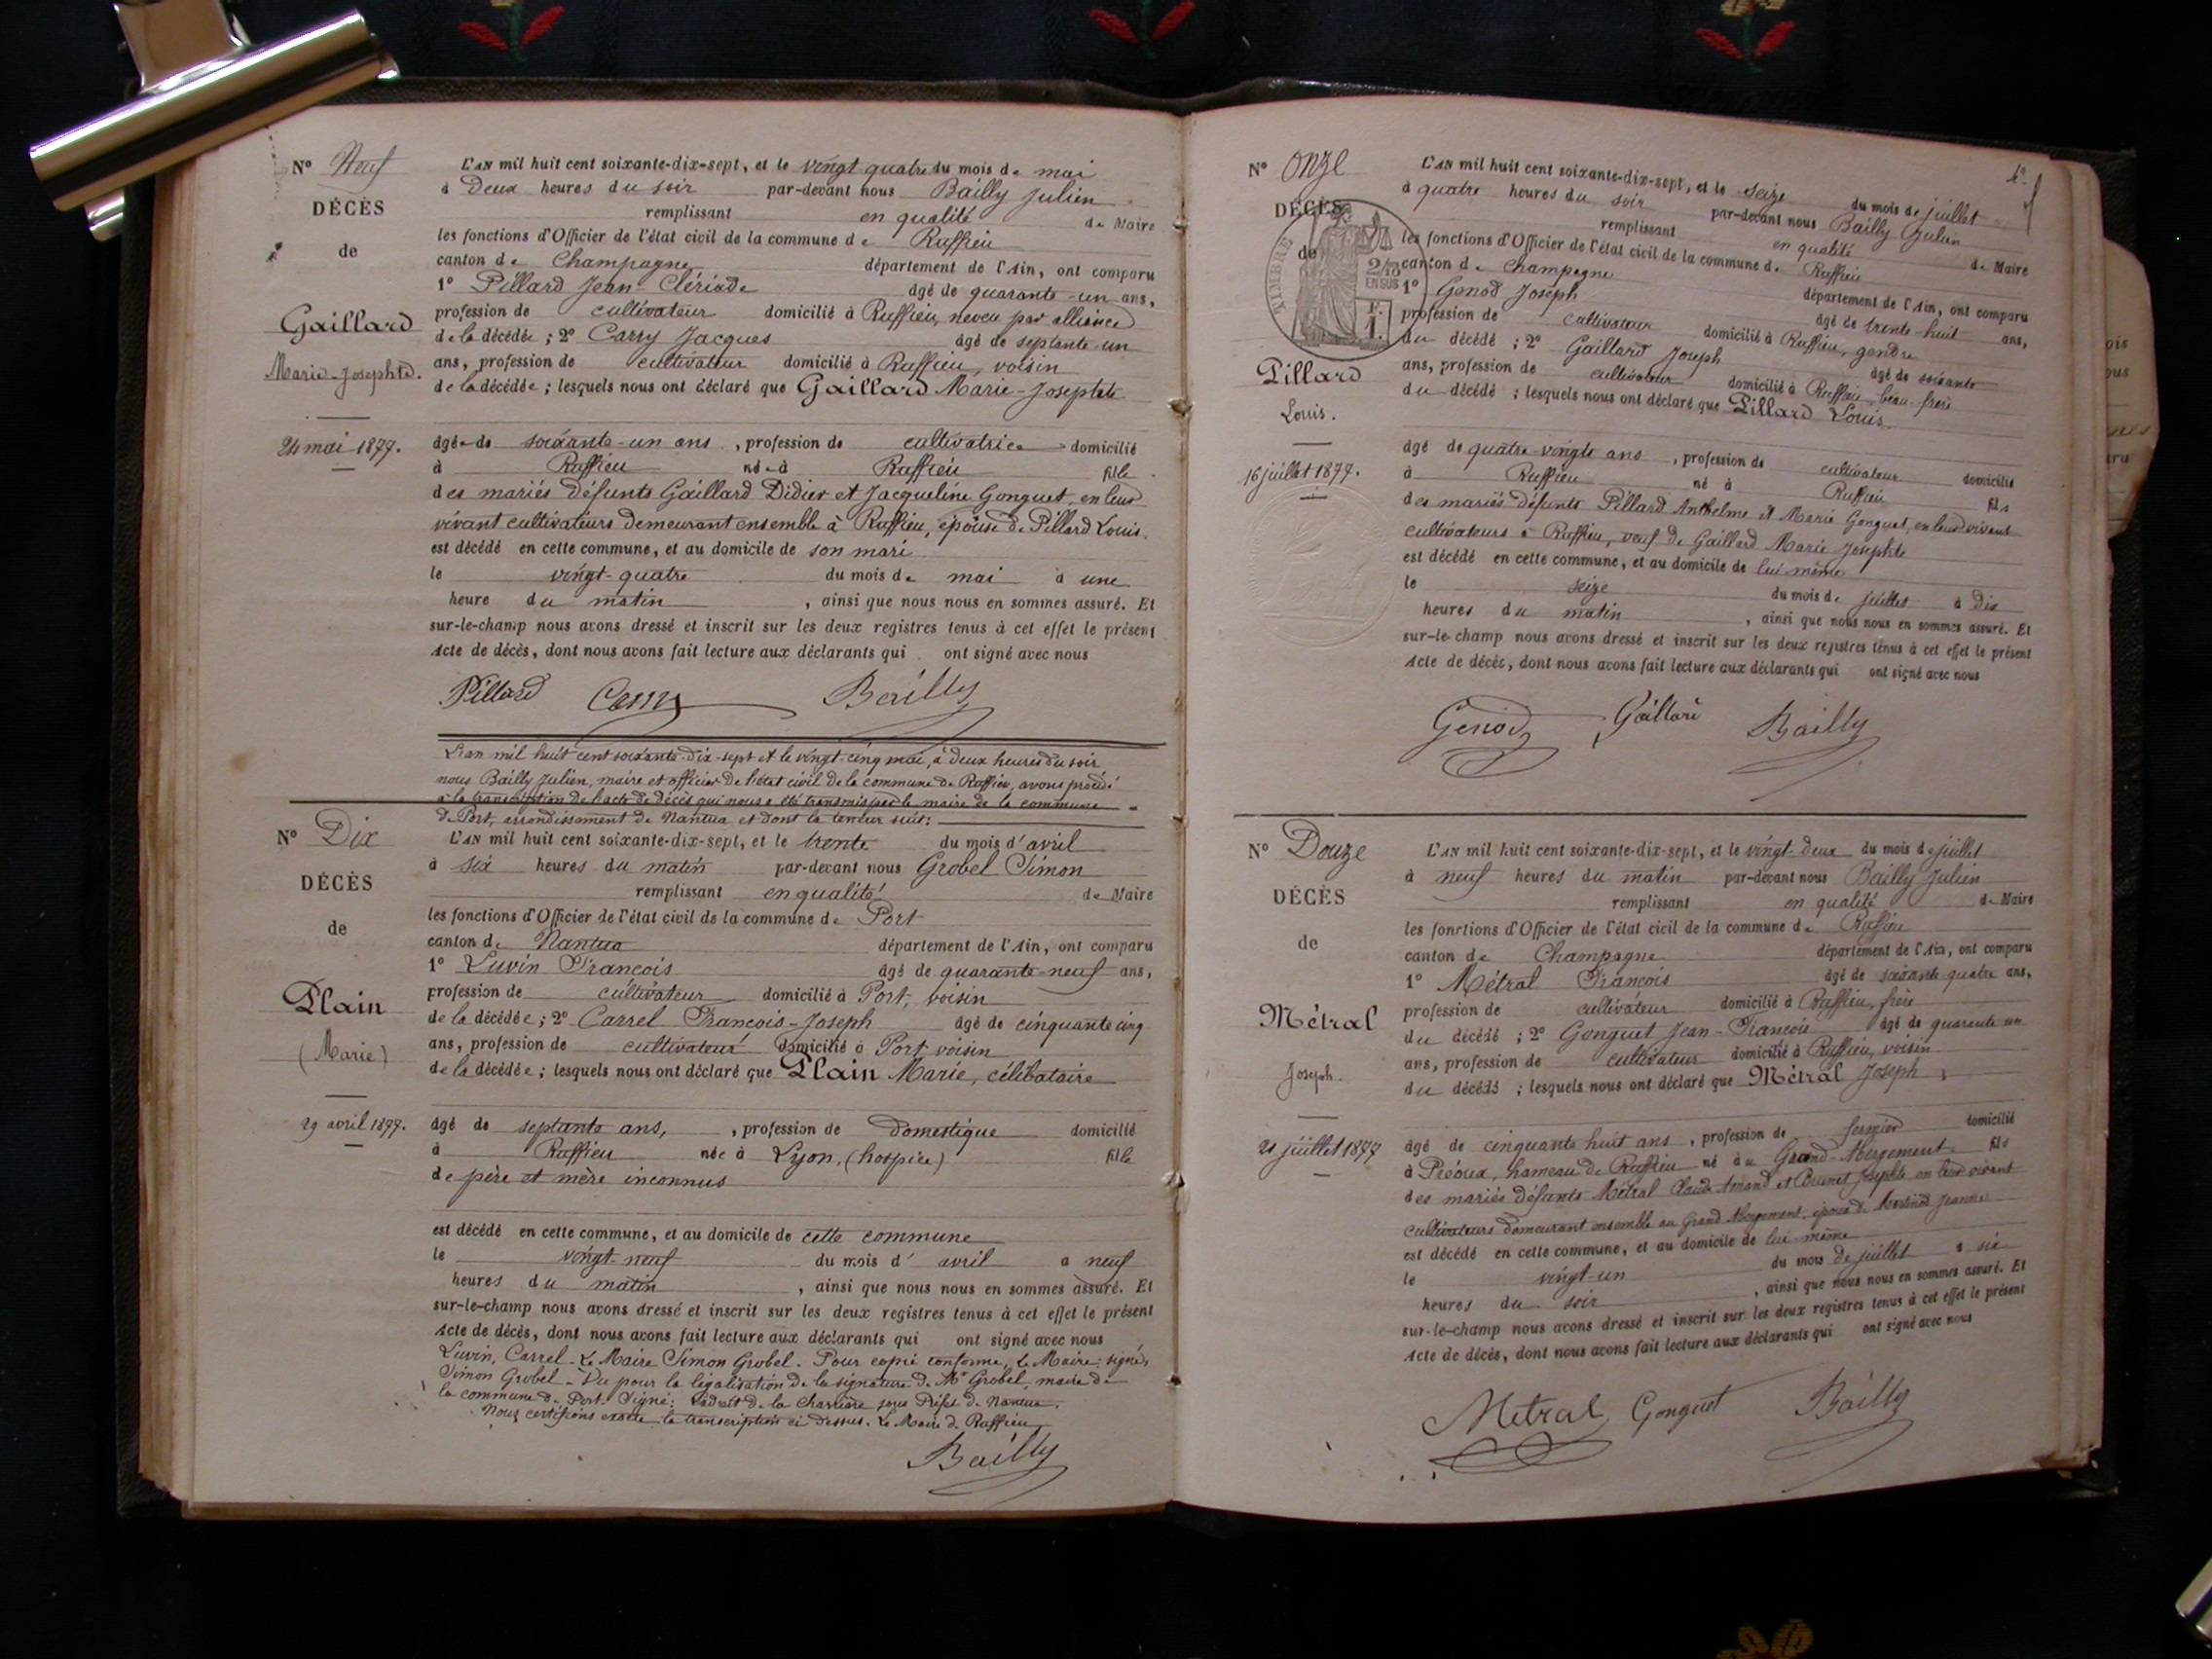 N° Neuf
DÉCÈS
de
Gaillard
Marie-Josephte.
24 mai 1877.
L'AN mil huit cent soixante-dix-sept, et le vingt quatre du mois de mai
à Deux heures du soir par-devant nous Bailly Julien
remplissant en qualité de Maire
les fonctions d'Officier de l'état civil de la commune de Ruffieu
canton de Champagne département de l'Ain, ont comparu
1° Pillard Jean-Clériade âgé de quarante-un ans,
profession de cultivateur domicilié à Ruffieu, neveu par alliance
de la décédée ; 2° Carry Jacques âgé de septante-un
ans, profession de cultivateur domicilié à Ruffieu, voisin
de la décédée ; lesquels nous ont déclaré que Gaillard Marie-Josephte
âgée de soixante-un ans , profession de cultivatrice domicilié
à Ruffieu née à Ruffieu fille
des mariés défunts Gaillard Didier et Jacqueline Gonguet, en leur
vivant cultivateurs demeurant ensemble à Ruffieu, épouse de Pillard Louis.
est décédé en cette commune, et au domicile de son mari
le vingt-quatre du mois de mai à une
heure du matin , ainsi que nous nous en sommes assuré. Et
sur-le-champ nous avons dressé et inscrit sur les deux registres tenus à cet effet le présent
Acte de décès, dont nous avons fait lecture aux déclarants qui ont signé avec nous
Pillard Carry Bailly
L'an mil huit cent soixante-dix-sept et le vingt-cinq mai, à deux heures du soir
nous Bailly Julien, maire et officier de l'état civil de la commune de Ruffieu, avons procédé
à la transcription de l'acte de décès qui nous a été transmis par le maire de la commune
de Port, arrondissement de Nantua et dont la teneur suit:
N° Dix
DÉCÈS
de
Plain
(Marie)
29 avril 1877.
L'AN mil huit cent soixante-dix-sept, et le trente du mois d'avril
à six heures du matin par-devant nous Grobel Simon
remplissant en qualité de Maire
les fonctions d'Officier de l'état civil de la commune de Port
canton de Nantua département de l'Ain, ont comparu
1° Luvin François âgé de quarante-neuf ans,
profession de cultivateur domicilié à Port, voisin
de la décédée ; 2° Carrel François-Joseph âgé de cinquante cinq
ans, profession de cultivateur domicilié à Port voisin
de la décédée ; lesquels nous ont déclaré que Plain Marie, célibataire
âgé de septante ans, , profession de domestique domicilié
à Ruffieu née à Lyon, (hospice) fille
de père et mère inconnus
est décédé en cette commune, et au domicile de cette commune
le vingt-neuf du mois d' avril à neuf
heures du matin , ainsi que nous nous en sommes assuré. Et
sur-le-champ nous avons dressé et inscrit sur les deux registres tenus à cet effet le présent
Acte de décès, dont nous avons fait lecture aux déclarants qui ont signé avec nous
Luvin, Carrel. Le Maire Simon Grobel. Pour copie conforme, le Maire: signé,
Simon Grobel - Vu pour la légalisation de la signature de Mr Grobel, maire de
la commune de Port. Signé: de la Charlière sous Préfet de Nantua.
Nous certifions exacte la transcription ci dessus. Le Maire de Ruffieu,
Bailly
N° Onze
DÉCÈS
de
TIMBRE
2/10
EN SUS
F.
1.
Pillard
Louis.
16 juillet 1877.
L'AN mil huit cent soixante-dix-sept, et le seize du mois de juillet
à quatre heures du soir par-devant nous Bailly Julien
remplissant en qualité de Maire
les fonctions d'Officier de l'état civil de la commune de Ruffieu
canton de Champagne département de l'Ain, ont comparu
1° Genod Joseph âgé de trente-huit ans,
profession de cultivateur domicilié à Ruffieu, gendre
du décédé ; 2° Gaillard Joseph âgé de soixante
ans, profession de cultivateur domicilié à Ruffieu, beau-frère
du décédé ; lesquels nous ont déclaré que Pillard Louis
âgé de quatre-vingts ans , profession de cultivateur domicilié
à Ruffieu né à Ruffieu fils
des mariés défunts Pillard Anthelme et Marie Gonguet, en leur vivant
cultivateurs à Ruffieu, veuf de Gaillard Marie Josephte
est décédé en cette commune, et au domicile de lui-même
le seize du mois de juillet à Dix
heures du matin , ainsi que nous nous en sommes assuré. Et
sur-le-champ nous avons dressé et inscrit sur les deux registres tenus à cet effet le présent
Acte de décès, dont nous avons fait lecture aux déclarants qui ont signé avec nous
Genod Gaillard Bailly
N° Douze
DÉCÈS
de
Métral
Joseph.
21 juillet 1877
L'AN mil huit cent soixante-dix-sept, et le vingt-deux du mois de juillet
à neuf heures du matin par-devant nous Bailly Julien
remplissant en qualité de Maire
les fonctions d'Officier de l'état civil de la commune de Ruffieu
canton de Champagne département de l'Ain, ont comparu
1° Métral François âgé de soixante quatre ans,
profession de cultivateur domicilié à Ruffieu, frère
du décédé ; 2° Gonguet Jean-François âgé de quarante un
ans, profession de cultivateur domicilié à Ruffieu, voisin
du décédé ; lesquels nous ont déclaré que Métral Joseph,
âgé de cinquante huit ans , profession de fermier domicilié
à Préoux, hameau de Ruffieu né au Grand-Abergement fils
des mariés défunts Métral Claude et Brunet Josephte en leur vivant
cultivateurs demeurant ensemble au Grand Abergement, époux de Jeanne
est décédé en cette commune, et au domicile de lui-même
le vingt-un du mois de juillet à six
heures du soir , ainsi que nous nous en sommes assuré. Et
sur-le-champ nous avons dressé et inscrit sur les deux registres tenus à cet effet le présent
Acte de décès, dont nous avons fait lecture aux déclarants qui ont signé avec nous
Métral Gonguet Bailly